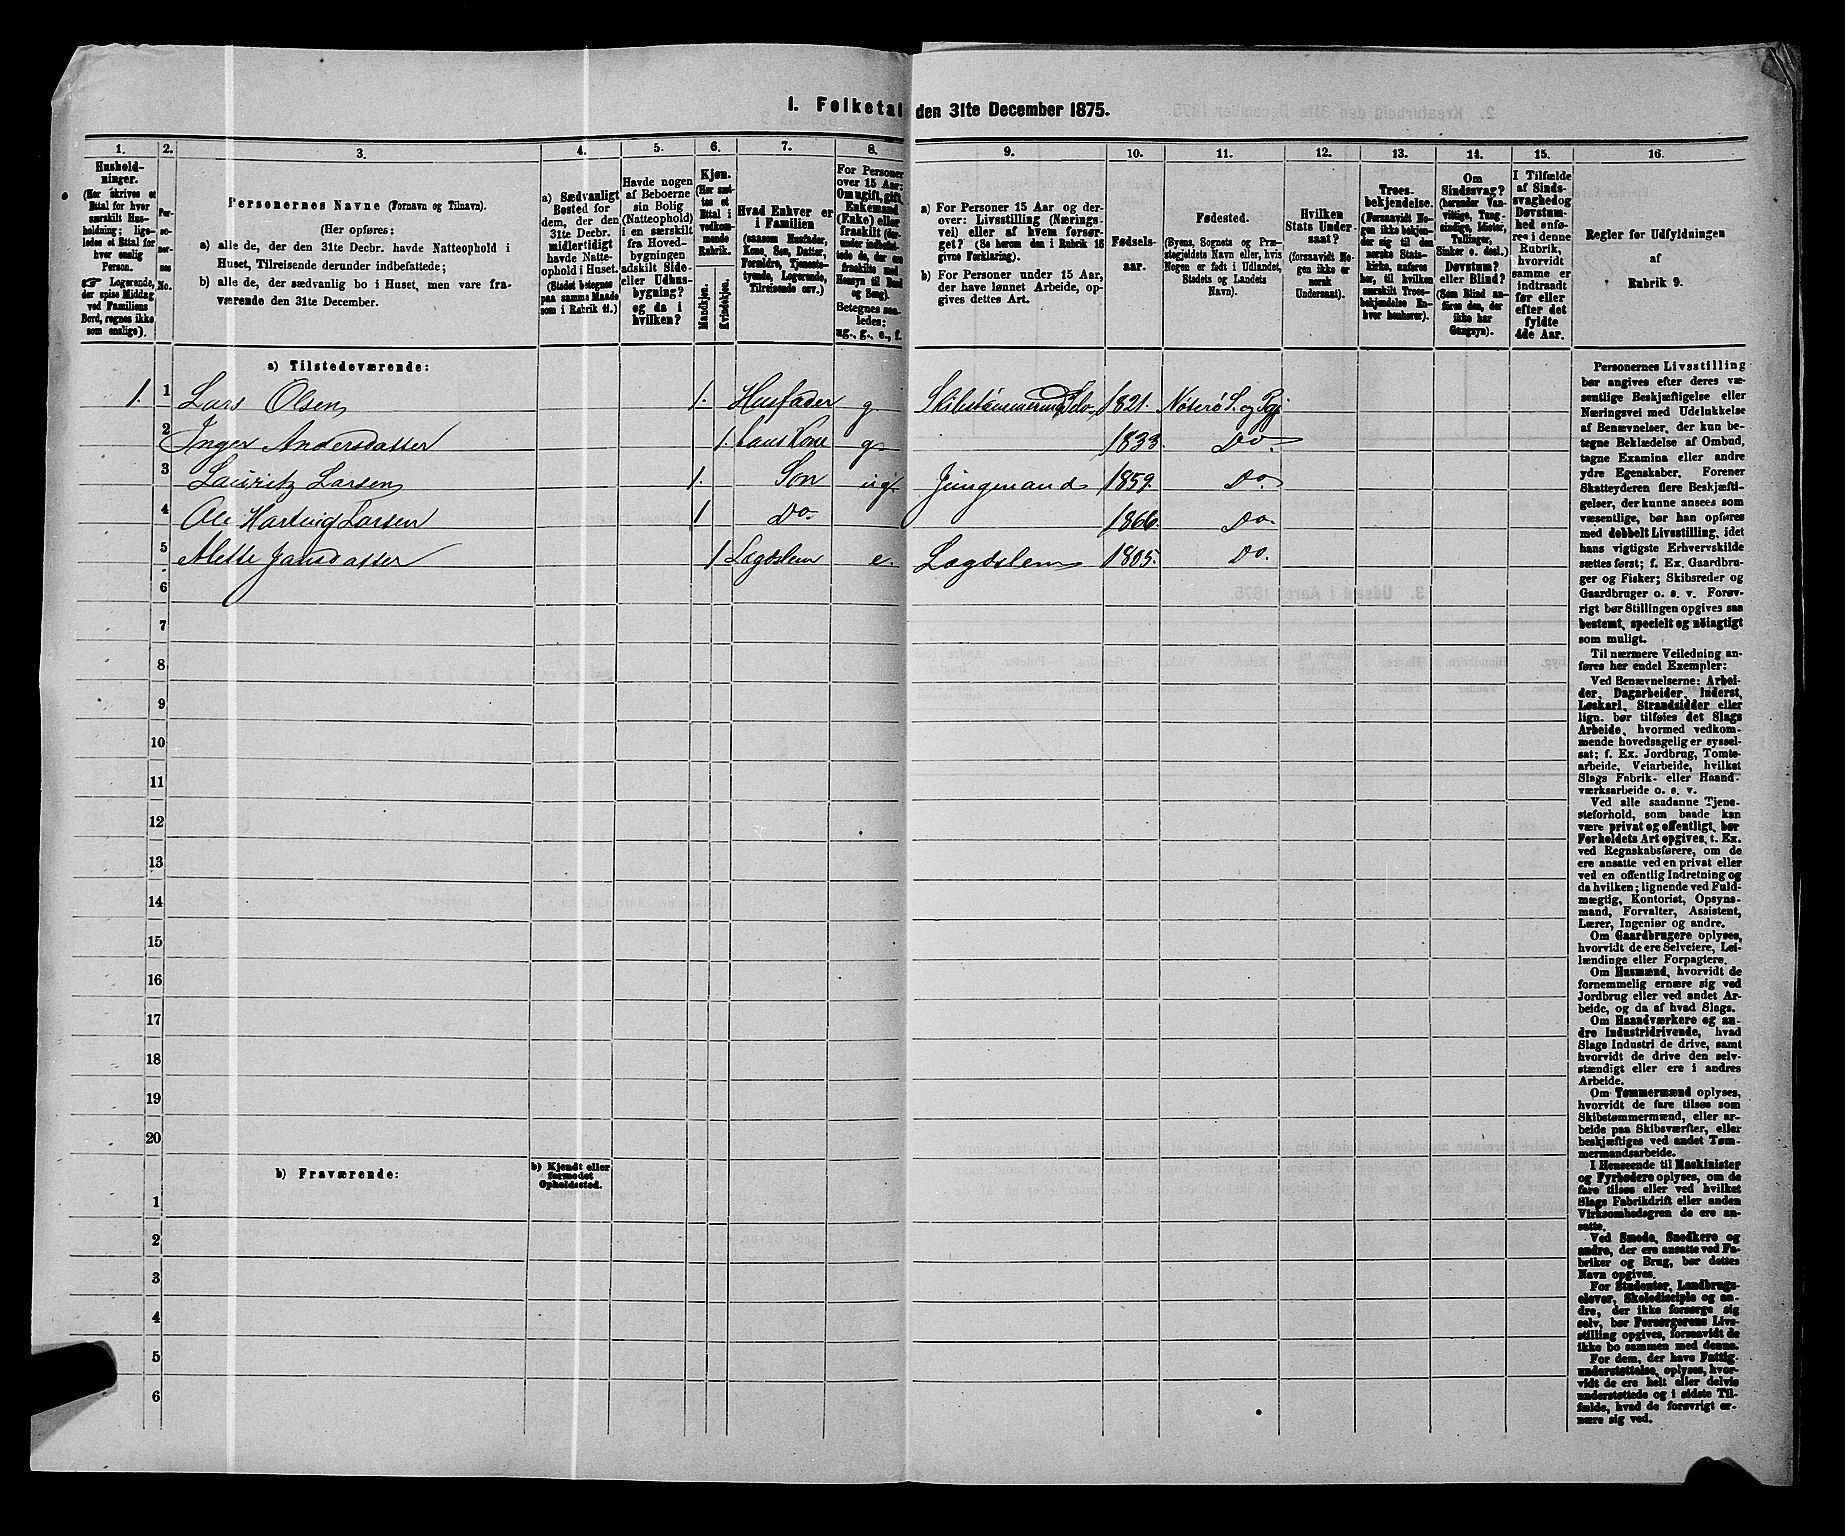 1. Folketal den 31te December 1875.
1. 2. 3. 4. 5. 6. 7. 8. 9. 10. 11. 12. 13. 14. 15. 16.
Hushold-
ninger.
(Her skrives et
Ettal for hver
særskilt Hus-
holdning; lige-
ledes et Ettal for
hver enslig
Person.
☞ Logerende,
der spise Middag
ved Familiens
Bord, regnes ikke
som enslige).
Per-
so-
ner-
nes
No.
Personernes Navne (Fornavn og Tilnavn).
(Her opføres:
a) alle de, der den 31te Decbr. havde Natteophold i
Huset, Tilreisende derunder indbefattede;
b) alle de, der sædvanlig bo i Huset, men vare fra-
værende den 31te December.
a) Sædvanligt
Bosted for
dem, der den
31te Decbr.
midlertidigt
havde Natte-
ophold i Huset.
(Stedet betegnes
paa samme Maade
som i Rubrik 11.)
Havde nogen
af Beboerne
sin Bolig
(Natteophold)
i en særskilt
fra Hoved-
bygningen
adskilt Side-
eller Udhus-
bygning?
og da i
hvilken?
Kjøn.
(Her sæt-
tes et
Ettal i
vedkom-
mende
Rubrik.
Mandkjøn.
Kvindekjøn.
Hvad Enhver er
i Familien
(saasom Husfader,
Kone, Søn, Datter,
Forældre, Tjeneste-
tyende, Logerende,
Tilreisende osv.)
For Personer
over 15 Aar:
Om ugift, gift,
Enkemand
(Enke) eller
fraskilt
Betegnes saa-
ledes:
ug., g., e., f.
a) For Personer 15 Aar og der-
over: Livsstilling (Nærings-
vei) eller af hvem forsør-
get? (Se herom den i Rubrik 16
givne Forklaring).
b) For Personer under 15 Aar,
der have lønnet Arbeide, op-
gives dettes Art.
Fødsels-
aar.
Fødested.
(Byens, Sognets og Præ-
stegjeldets Navn eller, hvis
Nogen er født i Udlandet,
Stedets og Landets
Navn).
Hvilken
Stats Under-
saat?
(forsaavidt No-
gen ikke er
norsk
Undersaat).
Troes-
bekjendelse.
(Forsaavidt No-
gen ikke bekjen-
der sig til den
norske Stats-
kirke, anføres
her, til hvilken
særskilt Troes-
bekjendelse En-
hver henhører).
Om
Sindssvag?
(herunder Van-
vittige, Tung-
sindige, Idioter,
Tullinger,
Sinker o. desl.)
Døvstum?
eller Blind?
(Som Blind an-
føres den, der
ikke har
Gangsyn).
I Tilfælde
af Sinds-
svaghed og
Døvstum-
hed anfø-
res i denne
Rubrik,
hvorvidt
samme er
indtraadt
før eller
efter det
fyldte
4de Aar.
Regler for Udfyldningen
af
Rubrik 9.
a) Tilstedeværende:
1. 1 Lars Olsen 1. Husfader g. Skibstømmermand Selv 1821. Nøterø S. og Pgj
2 Inger Andersdatter 1. hans Kone g 1833. Do
3 Lauritz Larsen 1. Søn ug. Jungmand 1859. Do.
4 Ole Hartvig Larsen 1 Do. 1866. Do.
5 Mette Jansdatter 1 Lægdslem e. Lægdslem 1805. Do.
6
7
8
9
10
11
12
13
14
15
16
17
18
19
20
b) Fraværende:
b) Kjendt eller
formodet
Opholdssted.
1
2
3
4
5
6
Personernes Livsstilling
bør angives efter deres væ-
sentlige Beskjæftigelse eller
Næringsvei med Udelukkelse
af Benævnelser, der kun be-
tegne Beklædelse af Ombud,
tagne Examina eller andre
ydre Egenskaber. Forener
Skatteyderen flere Beskjæfti-
gelser, der kunne ansees som
væsentlige, bør han opføres
med dobbelt Livsstilling, idet
hans vigtigste Erhvervskilde
sættes først; f. Ex. Gaardbru-
ger og Fisker; Skibsreder og
Gaardbruger o. s. v. Forøv-
rigt bør Stillingen opgives saa
bestemt, specielt og nøiagtigt
som muligt.
Til nærmere Veiledning an-
føres her endel Exempler:
Ved Benævnelserne: Arbei-
der, Dagarbeider, Inderst,
Løskarl, Strandsidder eller
lign. bør tilføies det Slags
Arbeide, hvormed vedkom-
mende hovedsagelig er syssel-
sat; f. Ex. Jordbrug, Tomte-
arbeide, Veiarbeide, hvilket
Slags Fabrik- eller Haand-
værksarbeide o. s. v.
Ved alle saadanne Tjene-
steforhold, som baade kan
være privat og offentligt, bør
Forholdets Art opgives, t. Ex.
ved Regnskabsførere, om de
ere ansatte ved en privat eller
ved en offentlig Indretning og
da hvilken; lignende ved Fuld-
mægtig, Kontorist, Opsyns-
mand, Forvalter, Assistent,
Lærer, Ingeniør og andre.
Om Gaardbrugere oplyses,
hvorvidt de ere Selveiere, Lei-
lændinge eller Forpagtere.
Om Husmænd, hvorvidt de
fornemmelig ernære sig ved
Jordbrug eller ved andet Ar-
beide, og da af hvad Slags.
Om Haandværkere og an-
dre Industridrivende, hvad
Slags Industri de drive, samt
hvorvidt de drive den selv-
stændigt eller ere i andres
Arbeide.
Om Tømmermænd oplyses,
hvorvidt de fare tilsøs som
Skibstømmermænd, eller ar-
beide paa Skibsværfter, eller
beskjæftiges ved andet Tøm-
mermandsarbeide.
I Henseende til Maskinister
og Fyrbødere oplyses, om de
fare tilsøs eller ved hvilket
Slags Fabrikdrift eller anden
Virksomhedsgren de ere an-
satte.
Ved Smede, Snedkere og
andre, der ere ansatte ved Fa-
briker og Brug, bør dettes
Navn opgives.
For Studenter, Landbrugs-
elever, Skoledisciple og an-
dre, der ikke forsørge sig
selv, bør Forsørgerens Livs-
stilling opgives, forsaavidt de
ikke bo sammen med denne.
For dem, der have Fattig-
understøttelse, oplyses, hvor-
vidt de ere helt eller delvis
understøttede og i sidste Til-
fælde, hvad de forøvrigt er-
nære sig ved.